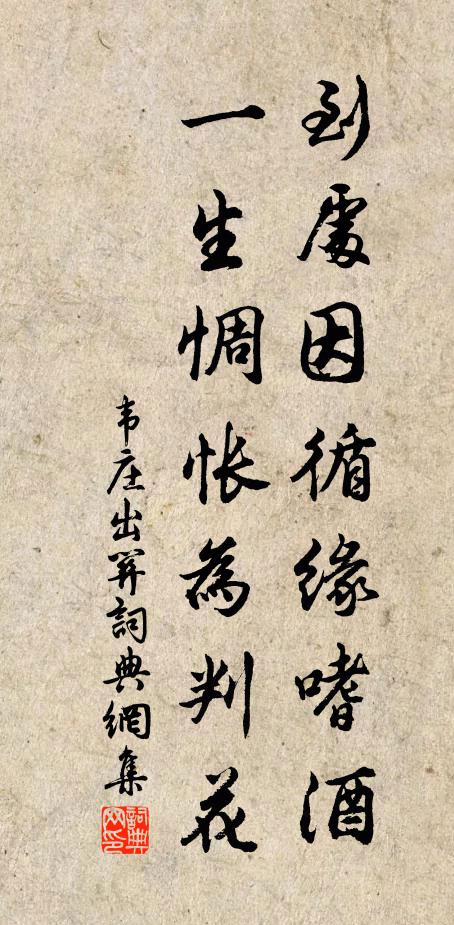 到處因循緣嗜酒
一生惆悵為判花
韦庄出關詞典網集
詞典網印